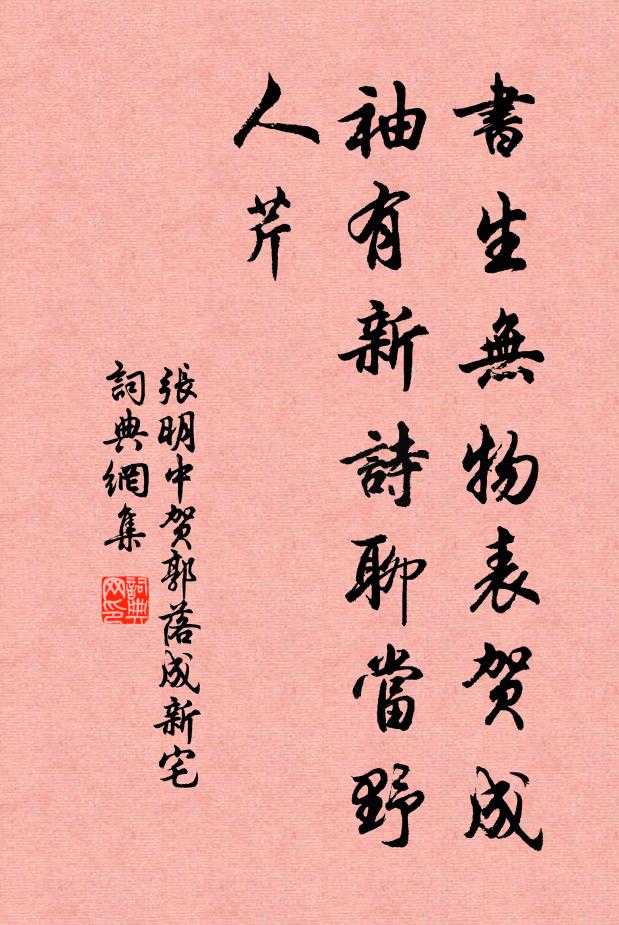 書生無物表賀成
袖有新詩聊當野
人芹
張明中賀郭落成新宅
詞典網集
詞典网印